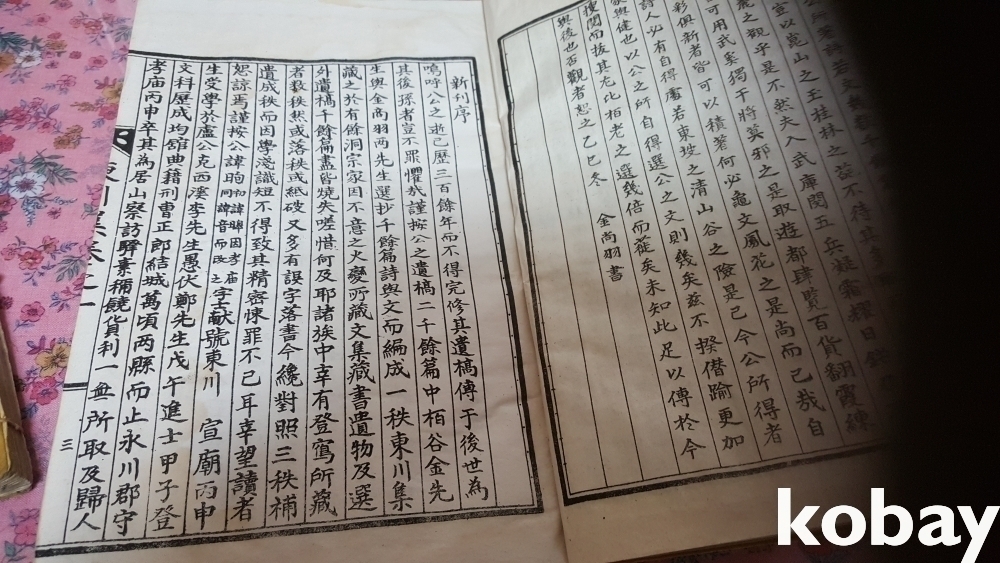 公所
宜以崑山之玉桂林之
之觀乎是不然夫入武庫閱五兵凝霜耀日
可用武奚獨干將莫邪之是取遊都肆覽百貨翻霞
彩俱新者皆可以積著何必龜文鳳花之是尚而已哉自
詩人必有自得處若東坡之清山谷之險是已今公所得者
與健也以公之所自得選公之文則幾矣茲不揆僭踰更加
搜閱而拔其尤比栢老之選幾倍而蓰矣未知此足以傳於今
與後也否觀者恕之乙巳冬
金尚羽書
新刊序
嗚呼公之逝已歷三百餘年而不得完修其遺稿傳于後世爲
其後孫者豈不罪懼哉謹按公之遺稿二千餘篇中栢谷金先
生與金尚羽两先生選抄千餘篇詩與文而編成一秩東川集
藏之於有餘洞宗家因不意之火變所藏文集藏書遺物及選
外遺稿千餘篇盡皆燒失嗟惜何及耶諸族中幸有登寫所藏
者數秩然或落秩或紙破又多有誤字落書今纔對照三秩補
遺成秩而因學淺識短不得致其精密悚罪不已耳幸望讀者
恕諒焉謹按公諱昫初諱 因考庙同諱音而改之字士獻號東川 宣廟丙申
生受學於盧公克西溪李先生愚伏鄭先生戊午進士甲子登
文科歷成均舘典籍刑曹正郎結城萬頃两縣而止永川郡守
考庙丙申卒其爲居山察訪驛素稱饒貨利一無所取及歸人
東川集卷之一
三
kobay